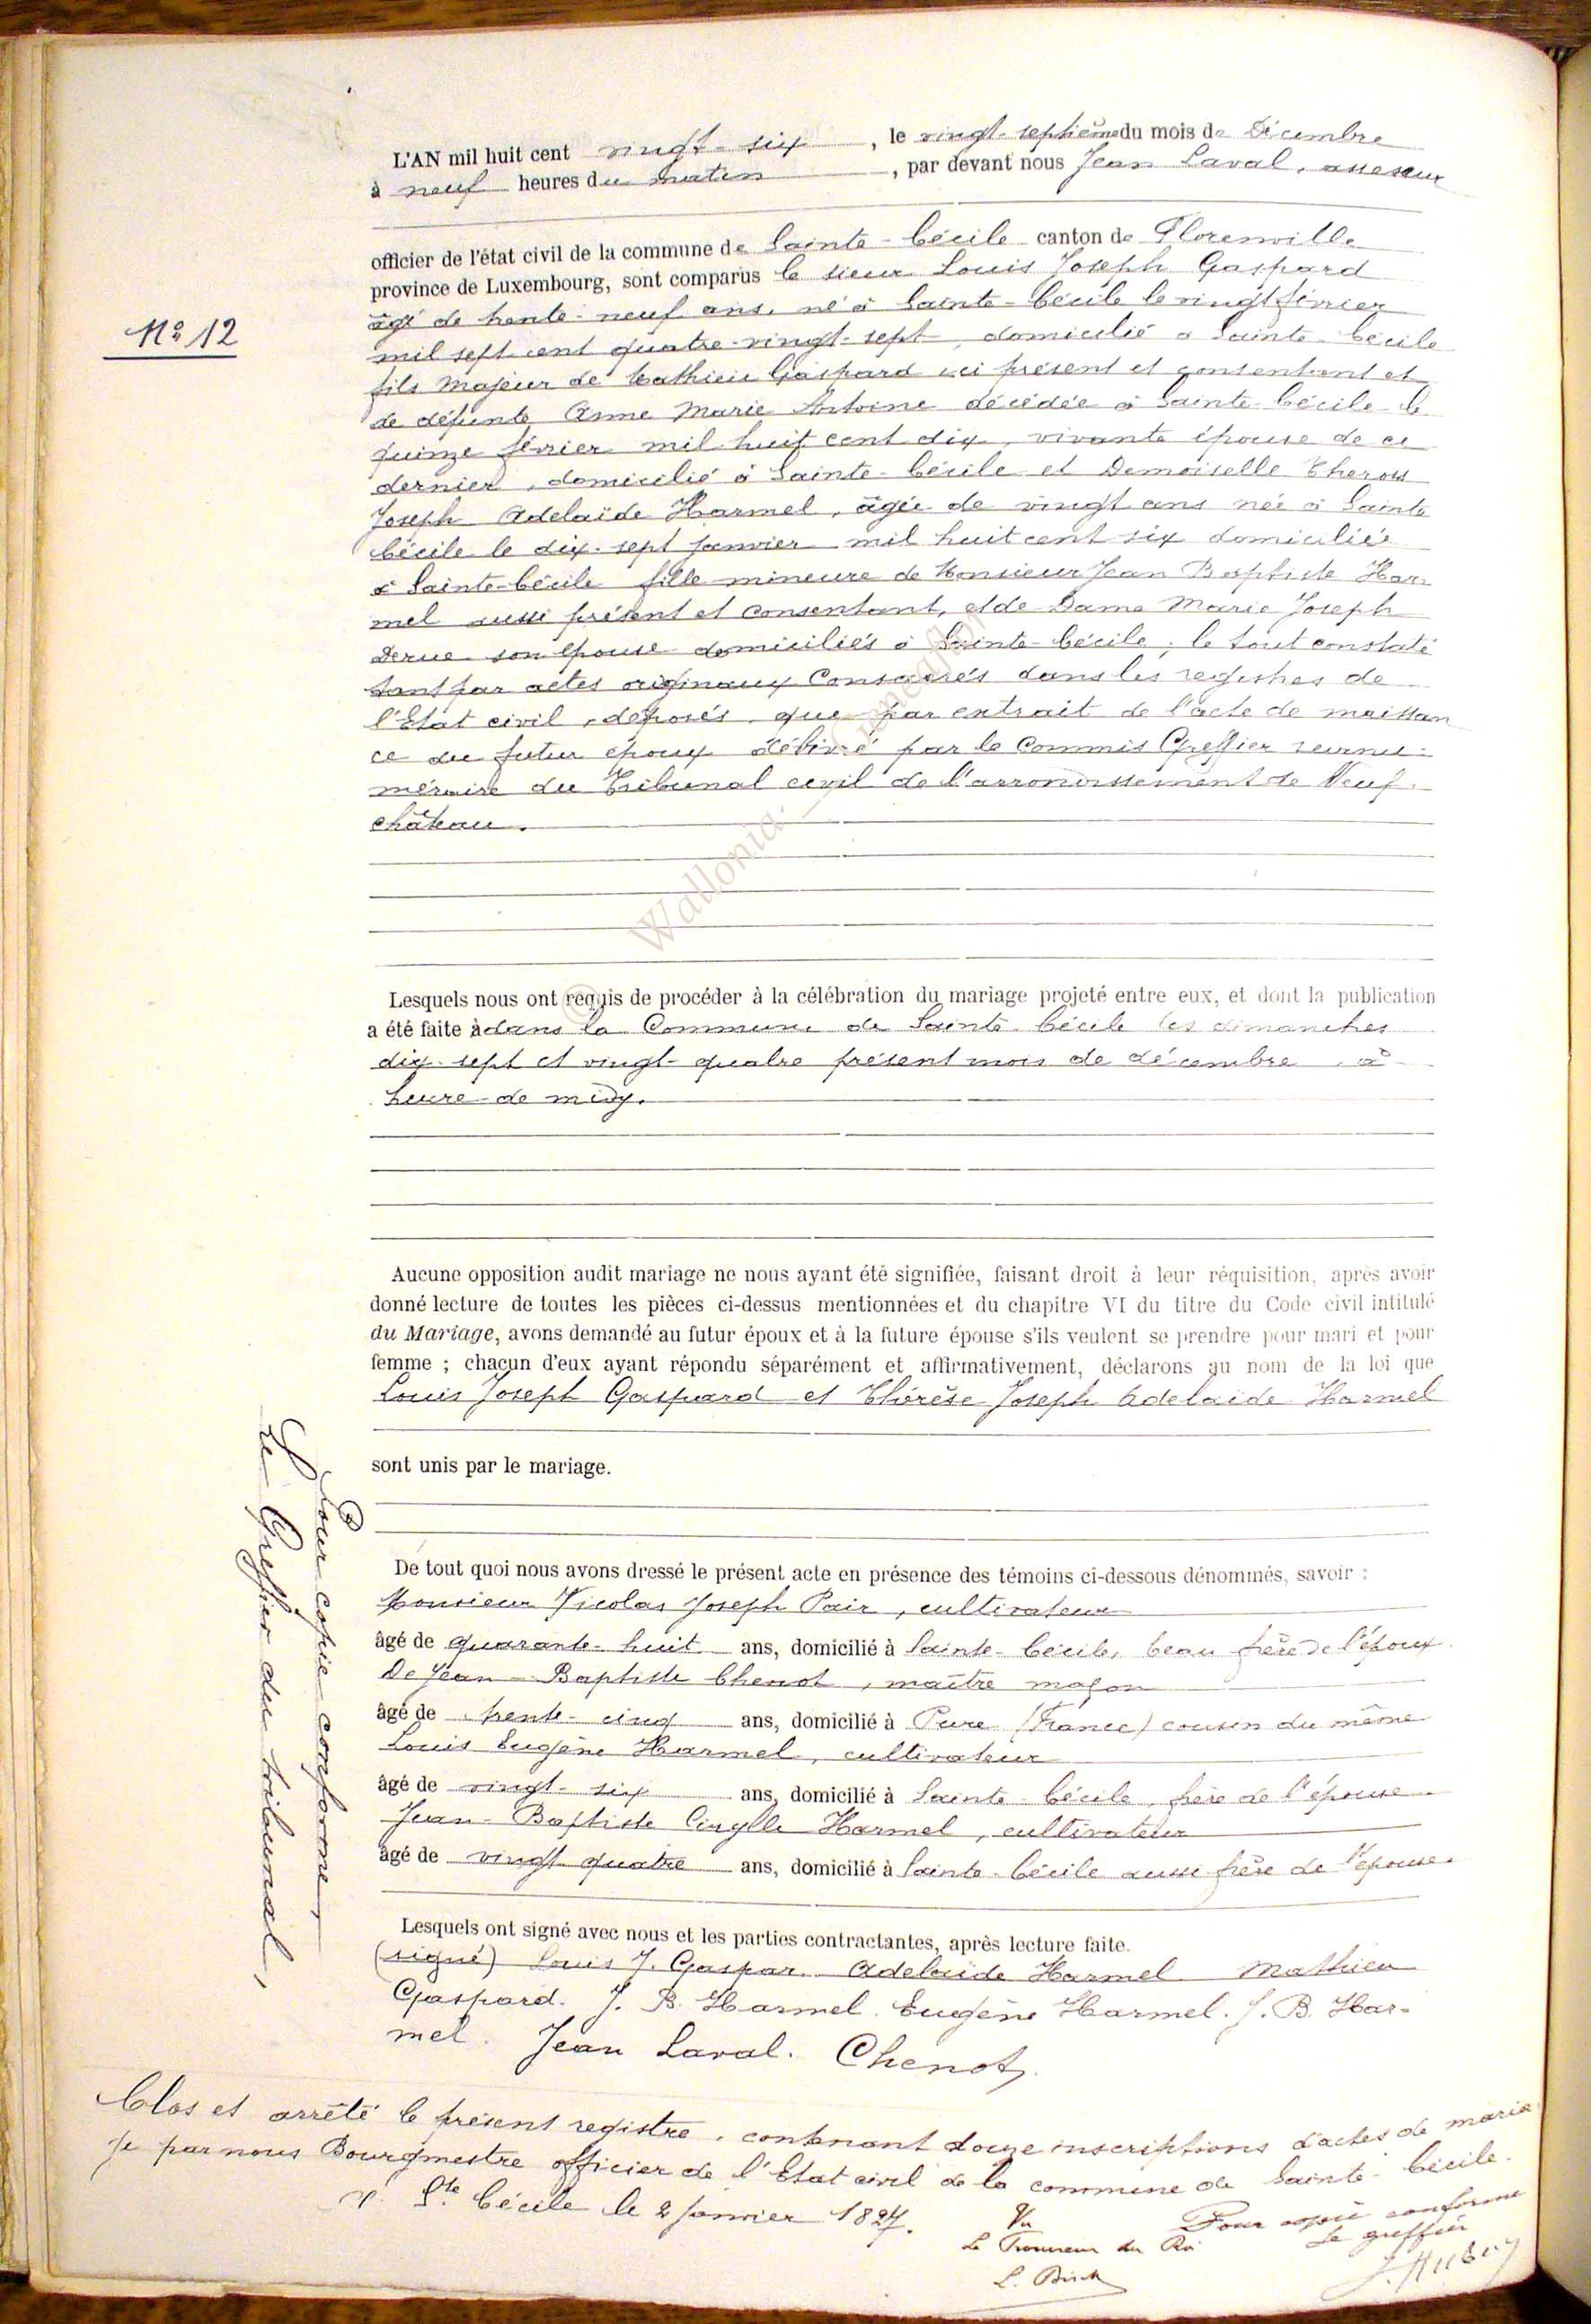 L'AN mil huit cent vingt-six, le vingt-septième du mois de Décembre
à neuf heures du matin, par devant nous Jean Laval, assesseur
officier de l'état civil de la commune de Sainte-Cécile canton de Florenville
province de Luxembourg, sont comparus le sieur Louis Joseph Gaspard
âgé de trente-neuf ans, né à Sainte-Cécile le vingt février
mil sept cent quatre-vingt-sept, domicilié à Sainte-Cécile
N° 12
fils majeur de Mathieu Gaspard ici présent et consentant et
de défunte Anne Marie Antoine décédée à Sainte-Cécile le
quinze février mil huit cent dix, vivante épouse de ce
dernier, domicilié à Sainte-Cécile et Demoiselle
Joseph Adelaïde Harmel, âgée de vingt ans née à Sainte
Cécile le dix-sept janvier mil huit cent six domiciliée
à Sainte-Cécile fille mineure de Monsieur Jean Baptiste Har
mel aussi présent et consentant, et de Dame Marie Joseph
Derue son épouse domiciliés à Sainte-Cécile; le tout constaté
tant par actes originaux consacrés dans les registres de
l'Etat civil, déposés, que par extrait de l'acte de naissan
ce du futur époux délivré par le Commis Greffier surnu-
méraire du Tribunal civil de l'arrondissement de Neuf-
château.
© Wallonia
Lesquels nous ont requis de procéder à la célébration du mariage projeté entre eux, et dont la publication
a été faite à dans la Commune de Sainte-Cécile les dimanches
dix-sept et vingt-quatre présent mois de décembre, à
heure de midy.
Aucune opposition audit mariage ne nous ayant été signifiée, faisant droit à leur réquisition, après avoir
donné lecture de toutes les pièces ci-dessus mentionnées et du chapitre VI du titre du Code civil intitulé
du Mariage, avons demandé au futur époux et à la future épouse s'ils veulent se prendre pour mari et pour
femme ; chacun d'eux ayant répondu séparément et affirmativement, déclarons au nom de la loi que
Louis Joseph Gaspard et Thérèse Joseph Adelaïde Harmel
sont unis par le mariage.
De tout quoi nous avons dressé le présent acte en présence des témoins ci-dessous dénommés, savoir :
Monsieur Nicolas Joseph Pair, cultivateur
âgé de quarante-huit ans, domicilié à Sainte-Cécile, beau frère de l'époux
De Jean-Baptiste Chenot, maître maçon
âgé de trente-cinq ans, domicilié à Pure (France) cousin du même
Louis Eugène Harmel, cultivateur
âgé de vingt-six ans, domicilié à Sainte-Cécile, frère de l'épouse
Jean-Baptiste Cirylle Harmel, cultivateur
âgé de vingt quatre ans, domicilié à Sainte-Cécile aussi frère de l'épouse.
Lesquels ont signé avec nous et les parties contractantes, après lecture faite.
(signé) Louis J. Gaspar. Adelaïde Harmel Mathieu
Gaspard. J. B. Harmel. Eugène Harmel. J. B. Har-
mel. Jean Laval. Chenot.
Pour copie conforme,
Le Greffier du tribunal,
Clos et arrêté le présent registre, contenant douze inscriptions d'actes de maria
ge par nous Bourgmestre officier de l'Etat civil de la commune de Sainte-Cécile.
Ste Cécile le 2 Janvier 1827.
Vu
Le Procureur du Roi
Pour copie conforme
Le greffier